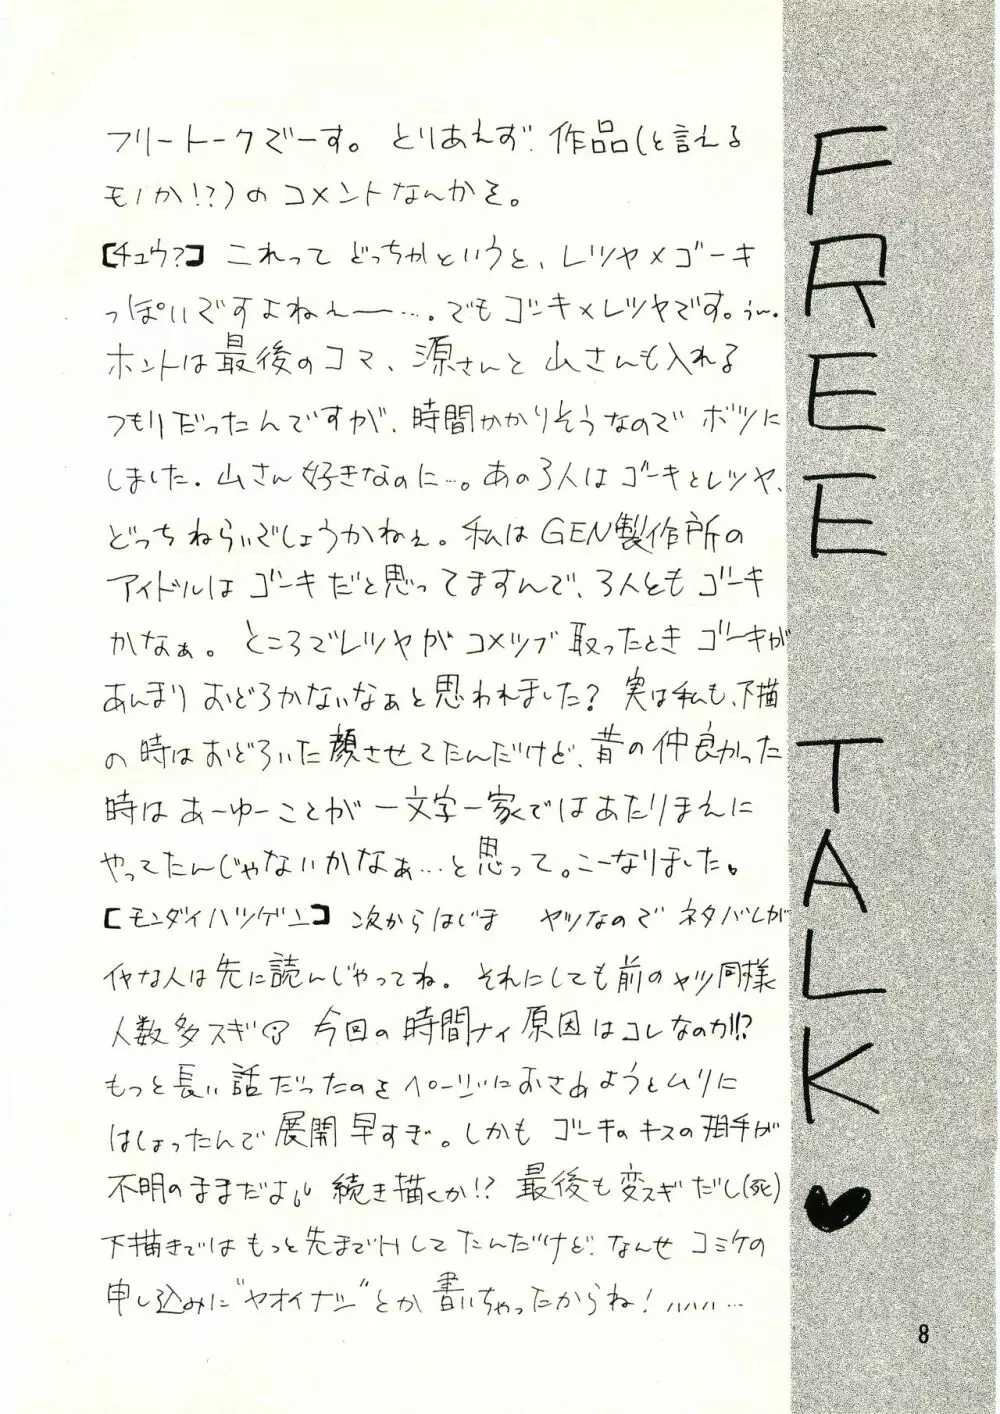 フリートークでーす。とりあえず、作品(と言える
モノか!?)のコメントなんかを。
【チュウ?】これってどっちかというと、レツヤ×ゴーキ
っぽいですよねぇー…。でもゴーキ×レツヤです。うー。
ホントは最後のコマ、源さんと山さんも入れる
つもりだったんですが、時間かかりそうなのでボツに
しました。山さん好きなのに…。あの3人はゴーキとレツヤ、
どっちねらいでしょうかねぇ。私はGEN製作所の
アイドルはゴーキだと思ってますんで、3人ともゴーキ
かなぁ。ところでレツヤがコメツブ取ったときゴーキが
あんまりおどろかないなぁと思われました?実は私も、下描
の時はおどろいた顔させてたんだけど、昔の仲良かった
時はあーゆーことが一文字一家ではあたりまえに
やってたんじゃないかなぁ…と思って。こーなりました。
【モンダイハツゲン】次からはじま ヤツなのでネタバレが
イヤな人は先に読んじゃってね。それにしても前のヤツ同様
人数多スギ 今回の時間ナイ原因はコレなのか!?
もっと長い話だったのをページ内におさめようとムリに
はしょったんで展開早すぎ。しかもゴーキのキスの相手が
不明のままだよ 続き描くか!?最後も変スギだし(死)
下描きではもっと先までHしてたんだけど、なんせコミケの
申し込みに"ヤオイナシ"とか書いちゃったからね!ハハハハ…
FREE TALK♥
8